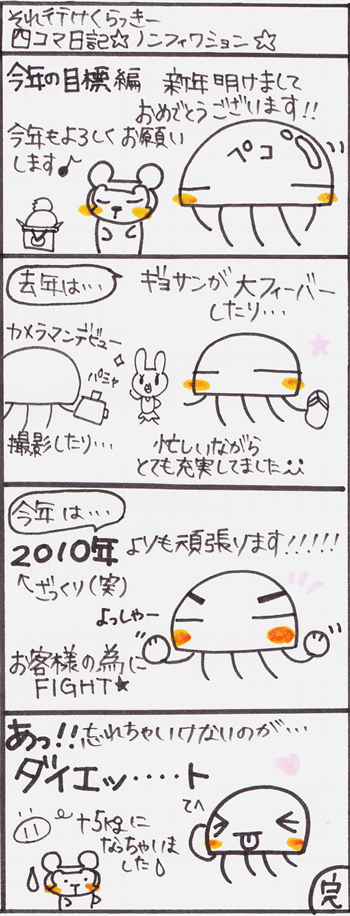 それ行けくらっきー
四コマ日記☆ノンフィクション☆
今年の目標編
新年明けまして
おめでとうございます!!
今年もよろしくお願い
します♪
ペコ
去年は…
ギョサンが大フィーバー
したり…
カメラマンデビュー
パシャ
撮影したり…
忙しいながら
とても充実してました
今年は…
2010年よりも頑張ります!!!!!
←ざっくり(笑)
よっしゃー
お客様の為に
FIGHT★
あっ!!忘れちゃいけないのが…
ダイエッ・・・・ト
てへ
+5kgに
なっちゃいま
した
完